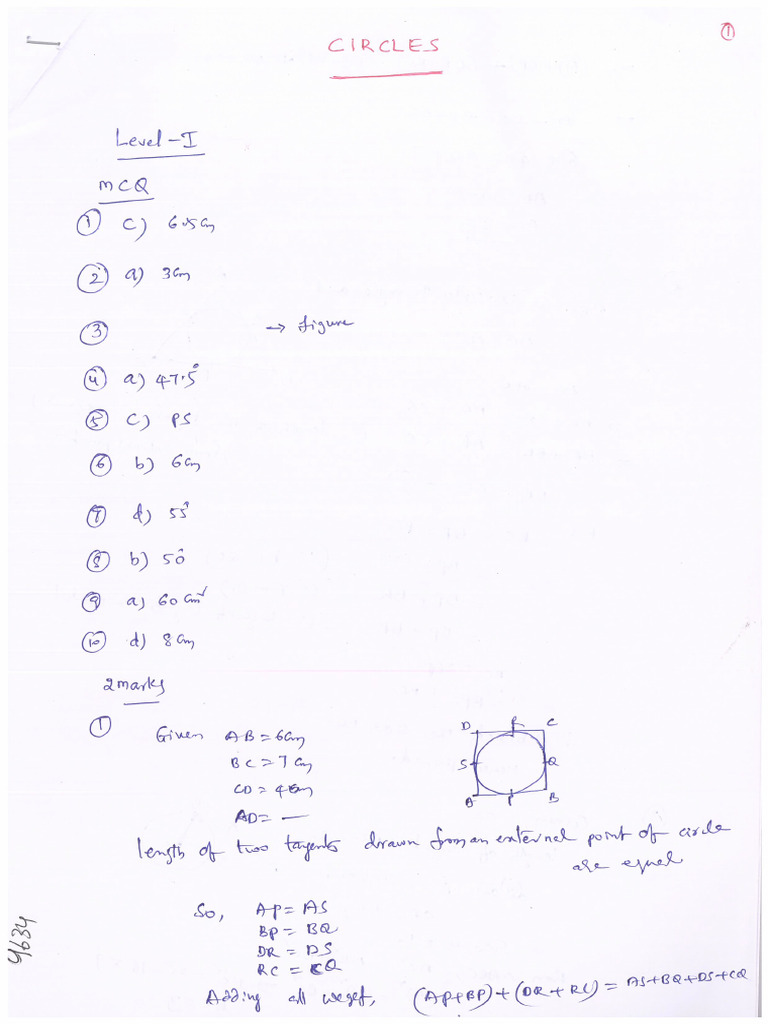 ①
CIRCLES
Level-I
MCQ
① c) 6.5cm
② a) 3cm
③ → figure
④ a) 47.5°
⑤ c) PS
⑥ b) 6cm
⑦ d) 55°
⑧ b) 50°
⑨ a) 60cm²
⑩ d) 8cm
2marks
① Given AB = 6cm
BC = 7cm
CD = 4cm
AD = —
D R C
S Q
A P B
length of two tangents drawn from an external point of circle
are equal
So, AP = AS
BP = BQ
DR = DS
RC = CQ
Adding all weget, (AP+BP)+(DR+RC) = AS+BQ+DS+CQ
4634